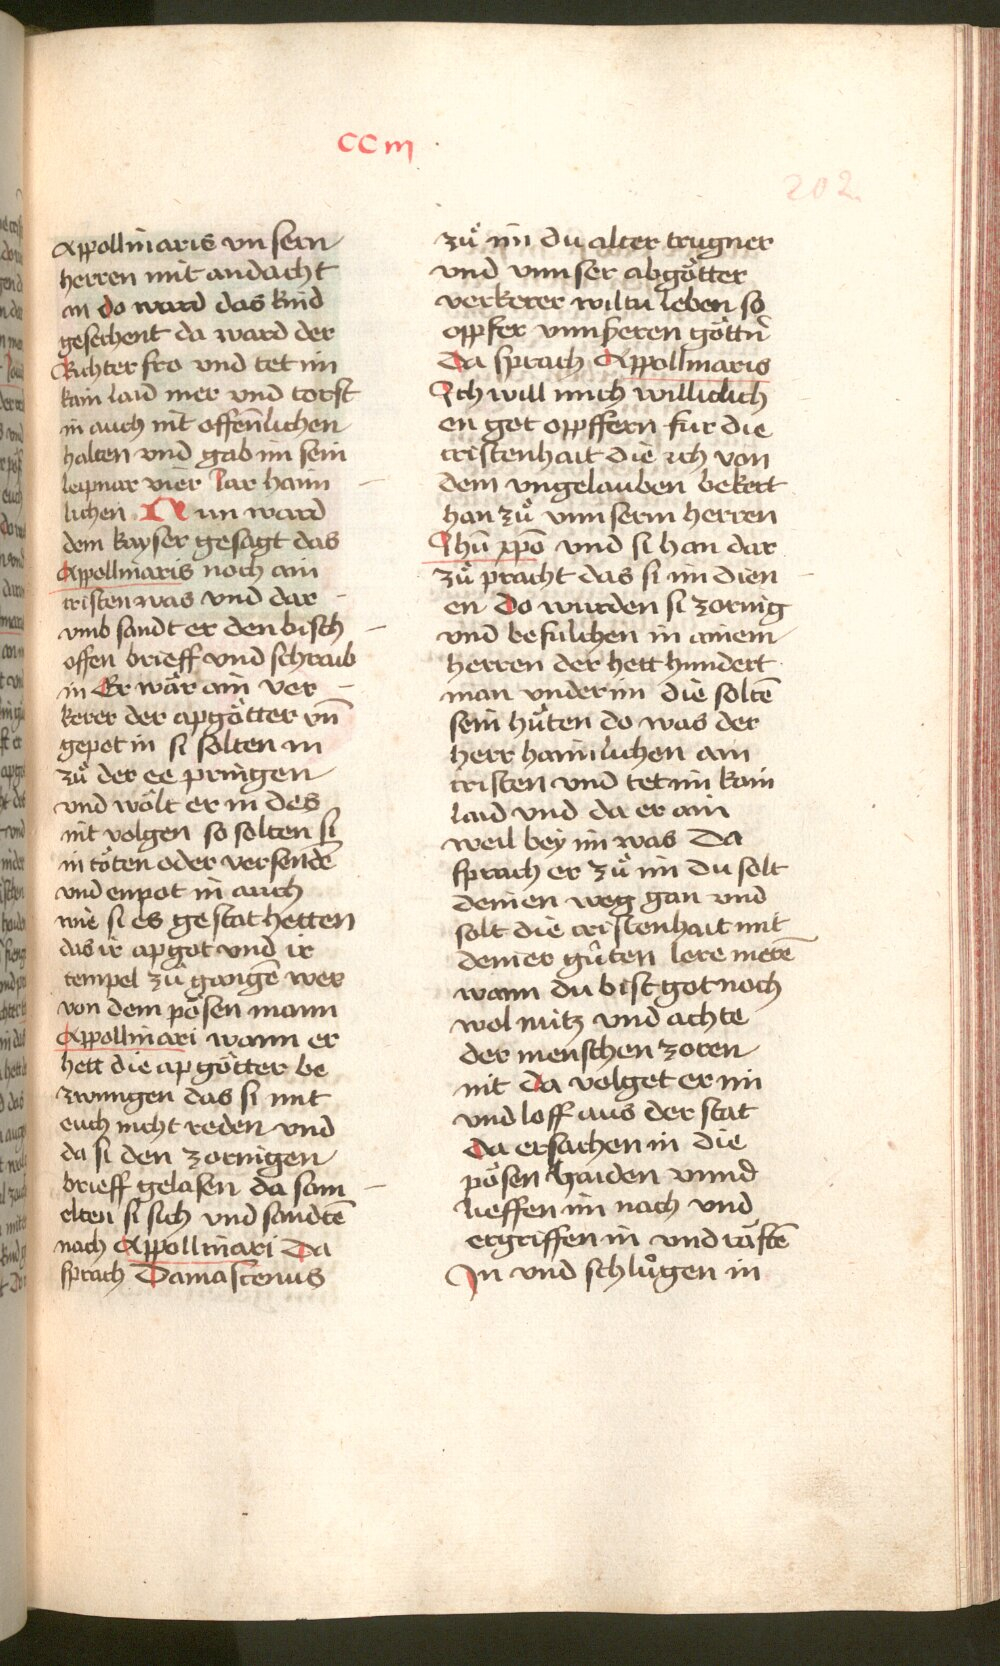 CCIII
202
Appollinaris vnsern
herren mit andacht
an do ward das kind
gesechent da ward der
Richter fro vnd tet im
kain laid mer vnd torst
in auch nit offenlichen
halten vnd gab im sein
leipnar vier Iar haim
lichen Nun ward
dem kayser gesagt das
Appollinaris noch ain
cristen was vnd dar
vmb sandt er den bisch
offen brieff vnd schraib
in Er wär ain ver
kerer der apgötter vn̄
gepot in si solten in
zů der ee pringen
vnd wölt er in des
nit volgen so solten si
in töten oder versendē
vnd enpot in auch
wie si es gestat hetten
das ir apgot vnd ir
tempel zů gangē wer
von dem pösen mann
Appollinari wann er
hett die apgötter be
zwungen das si mit
euch nicht reden vnd
da si den zornigen
brieff gelasen da sam
elten si sich vnd sandtē
nach Appollinari Da
sprach Damascenus
zů im du alter trugner
vnd vnnser abgötter
verkerer wiltu leben so
opfer vnnseren göttn̄
Da sprach Appollinaris
Ich will mich williclich
en got opffern für die
cristenhait die ich von
dem vngelauben bekert
han zů vnnserm herren
Ihū xpō vnd si han dar
zů pracht das si im dien
en Do wurden si zornig
vnd befulchen in ainem
herren der hett hundert
man vnder im die soltē
sein hüten do was der
herr haimlichen ain
cristen vnd tet im kain
laid vnd da er ain
weil bey im was Da
sprach er zů im du solt
deinen weg gan vnd
solt die cristenhait mit
deiner gůten lere merē
wann du bist got noch
wol nütz vnd achte
der menschen zoren
nit da volget er im
vnd loff aus der stat
da ersachen in die
pösen haiden vnnd
lieffen im nach vnd
ergriffen in vnd räftē
In vnd schlůgen in